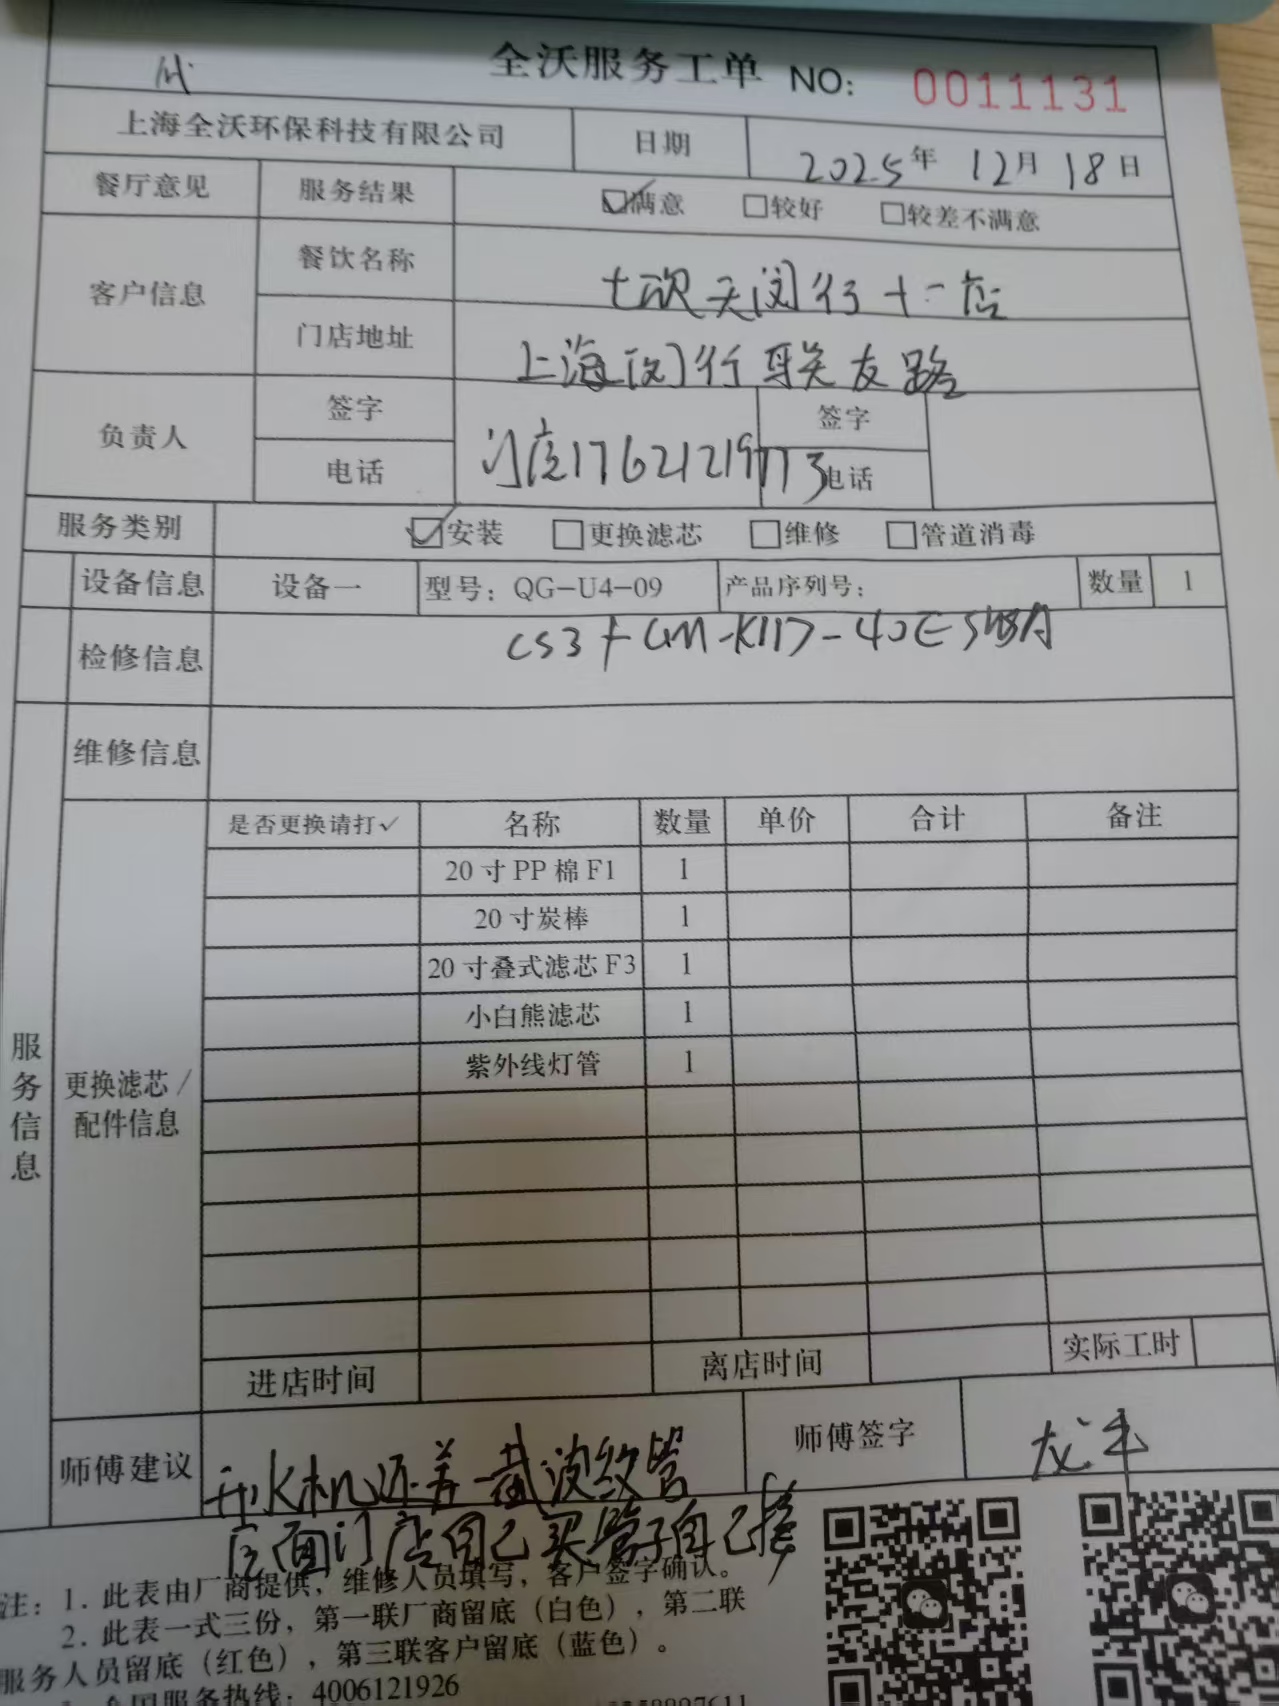 全沃服务工单 NO: 0011131
上海全沃环保科技有限公司 日期 2025年 12月 18日
餐厅意见 服务结果 ☑满意 □较好 □较差不满意
客户信息 餐饮名称 七欣天闵行十一店
门店地址 上海闵行联友路
负责人 签字 签字
电话 门店17621219773 电话
服务类别 ☑安装 □更换滤芯 □维修 □管道消毒
设备信息 设备一 型号: QG-U4-09 产品序列号: 数量 1
检修信息 CS3+
维修信息
服务信息
更换滤芯/
配件信息
是否更换请打✓ 名称 数量 单价 合计 备注
20寸PP棉F1 1
20寸炭棒 1
20寸叠式滤芯F3 1
小白熊滤芯 1
紫外线灯管 1
进店时间 离店时间 实际工时
师傅建议 开水机还差一截波纹管 师傅签字
后面门店自己买管子自己接
注: 1. 此表由厂商提供, 维修人员填写, 客户签字确认。
2. 此表一式三份, 第一联厂商留底(白色), 第二联
服务人员留底(红色), 第三联客户留底(蓝色)。
全国服务热线: 4006121926